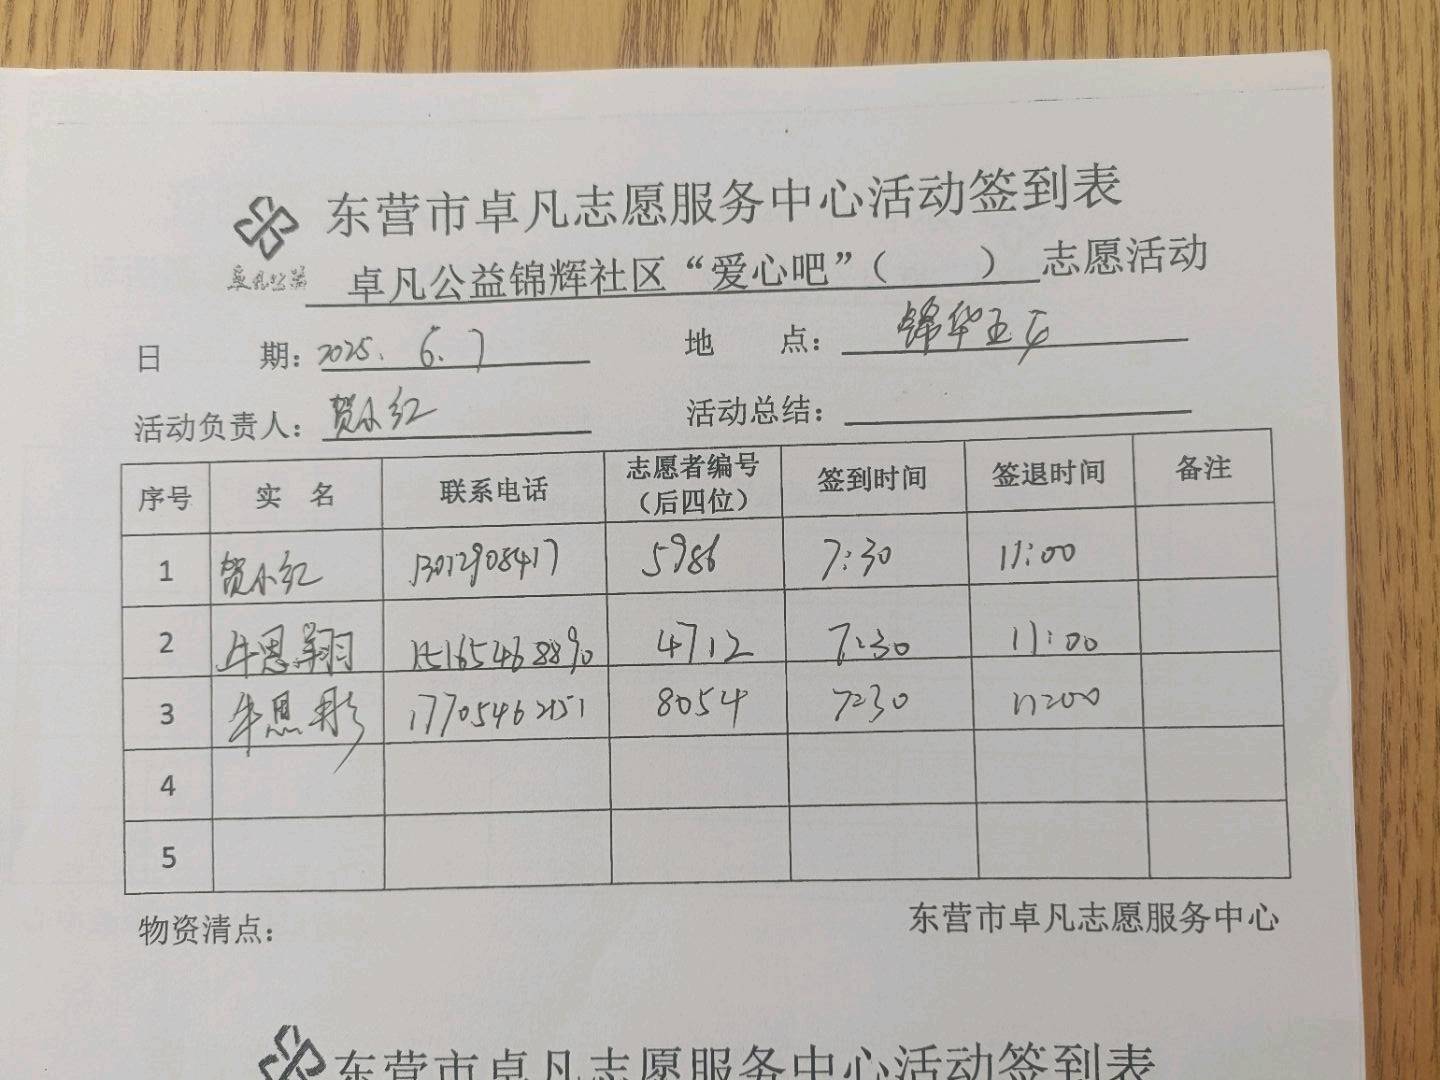 东营市卓凡志愿服务中心活动签到表
卓凡公益
卓凡公益锦辉社区“爱心吧”（　　）志愿活动
日　期：2025.6.7　地　点：锦华五区
活动负责人：贺小红　活动总结：
序号　实　名　联系电话　志愿者编号（后四位）　签到时间　签退时间　备注
1　贺小红　13012908417　5986　7:30　11:00
2　牛恩翔　15165468890　4712　7:30　11:00
3　牛恩彤　17705462151　8054　7:30　11:00
4
5
物资清点：　东营市卓凡志愿服务中心
东营市卓凡志愿服务中心活动签到表